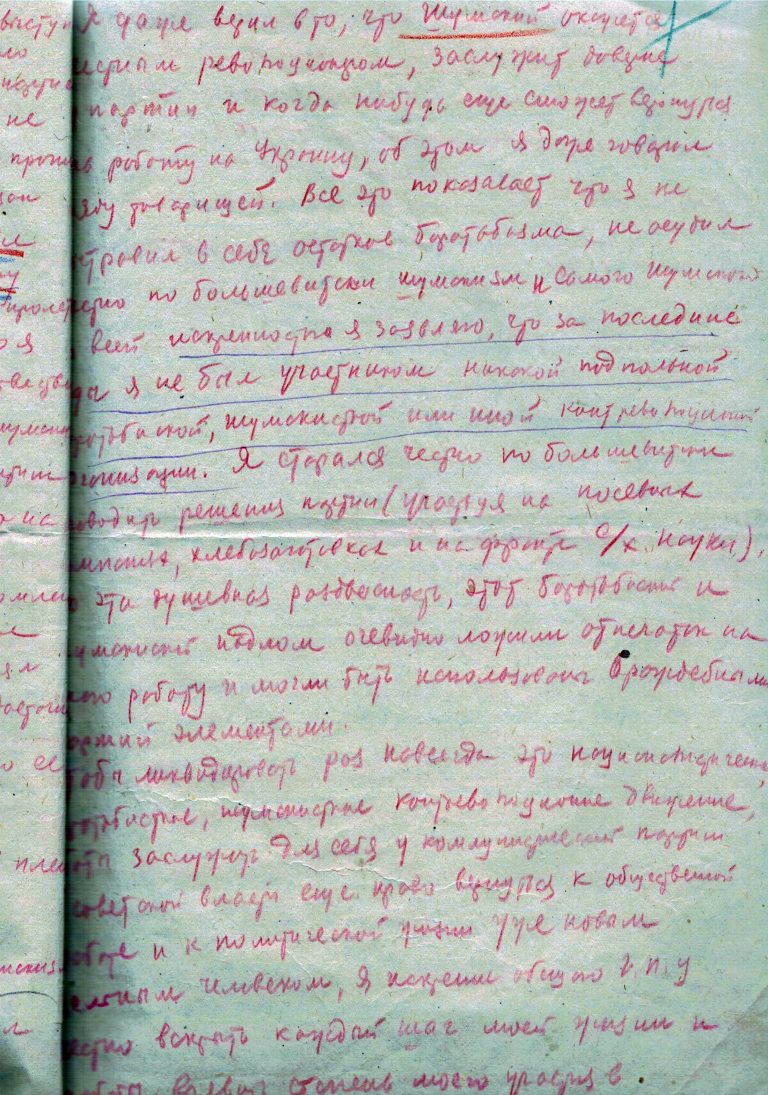 Я даже верил в то, что Шумский окажется
честным революционером, заслужит доверие
партии и когда нибудь еще сможет вернуться
на работу на Украину, об этом я даже говорил
ряду товарищей. Все это показывает что я не
вытравил в себе остатков боротьбизма, не осудил
по большевистски шумскизм и самого Шумского
всей искренностью я заявляю, что за последние
годы я не был участником никакой подпольной
боротьбистской, шумскистской или иной контрреволюционной
организации. Я старался честно по большевистски
проводить решения партии (участвуя на посевных
кампаниях, хлебозаготовках и на фронте с/х. науки),
эта душевная раздвоенность, этот боротьбистский и
шумскистский надлом очевидно ложили отпечаток на
мою работу и могли быть использованы враждебными
партии элементами.
Чтобы ликвидировать раз навсегда это националистическое,
боротьбистское, шумскистское контрреволюционное движение,
чтобы заслужить для себя у коммунистической партии
советской власти еще право вернуться к общественной
работе и к политической жизни уже новым
человеком, я искренне обещаю Г.П.У
честно вскрыть каждый шаг моей жизни и
работы, степень моего участия в